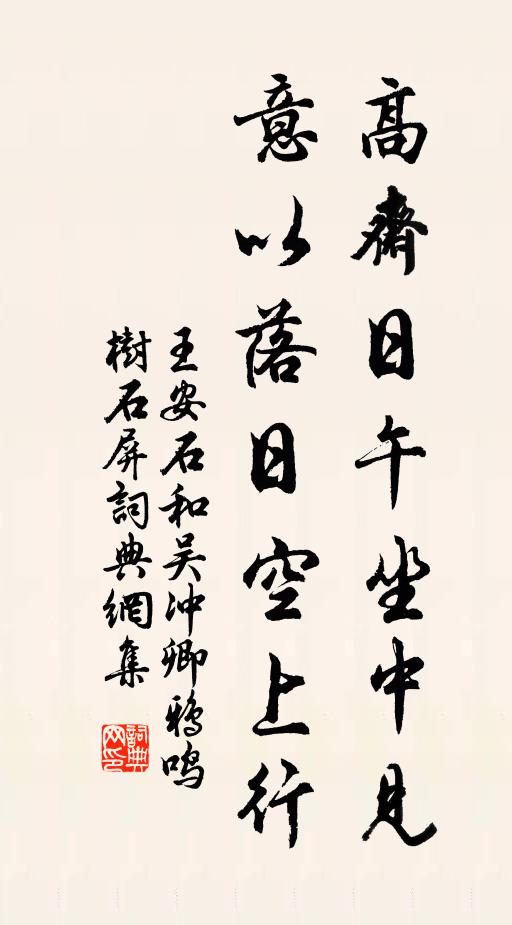 高齋日午坐中見
意以落日空上行
王安石和吴冲卿鸦鸣
樹石屏詞典網集
詞典网印